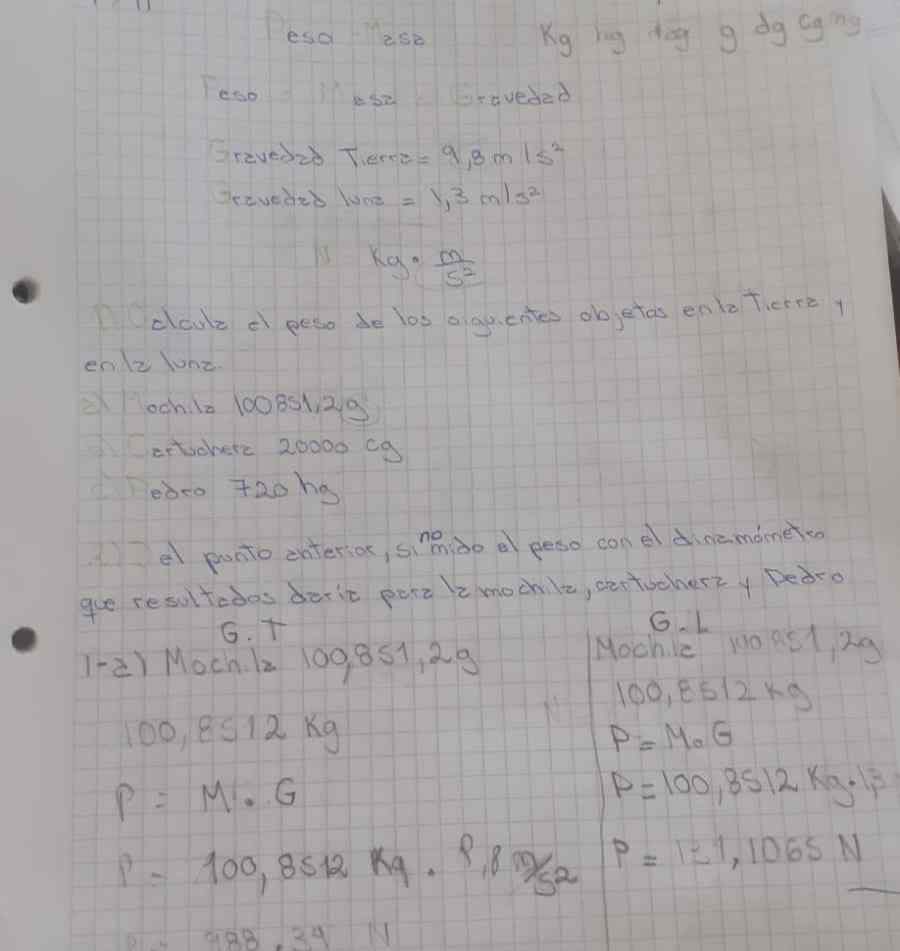 Peso Masa Kg hg dag g dg cg mg
Peso = Masa · Gravedad
Gravedad Tierra = 9,8 m/s²
Gravedad luna = 1,3 m/s²
N Kg · m/s²
1) Calcula el peso de los siguientes objetos en la Tierra y
en la luna.
a) Mochila 100851,2g
b) Cartuchera 20000 cg
c) Pedro 720 hg
el punto anterior, si no mido el peso con el dinamómetro
que resultados daria para la mochila, cartuchera y Pedro
G.T
1-a) Mochila 100,851,2g
100,8512 Kg
P = M . G
P = 100,8512 Kg . 9,8 m/s2
P = 988,34 N
G.L
Mochila 100851,2g
100,8512 kg
P = M . G
P = 100,8512 Kg . 1,3
P = 131,1065 N